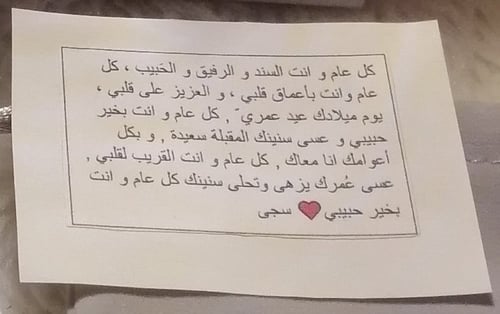 كل عام و انت السند و الرفيق و الحَبيب ، كل
عام وانت بأعماق قلبي ، و العزيز على قلبي ،
يوم ميلادك عيد عمريّ , كل عام و انت بخير
حبيبي و عسى سنينك المقبلة سعيدة , و بكل
أعوامك انا معاك , كل عام و انت القريب لقلبي ,
عسى عُمرك يزهى وتحلى سنينك كل عام و انت
بخير حبيبي ❤ سجى